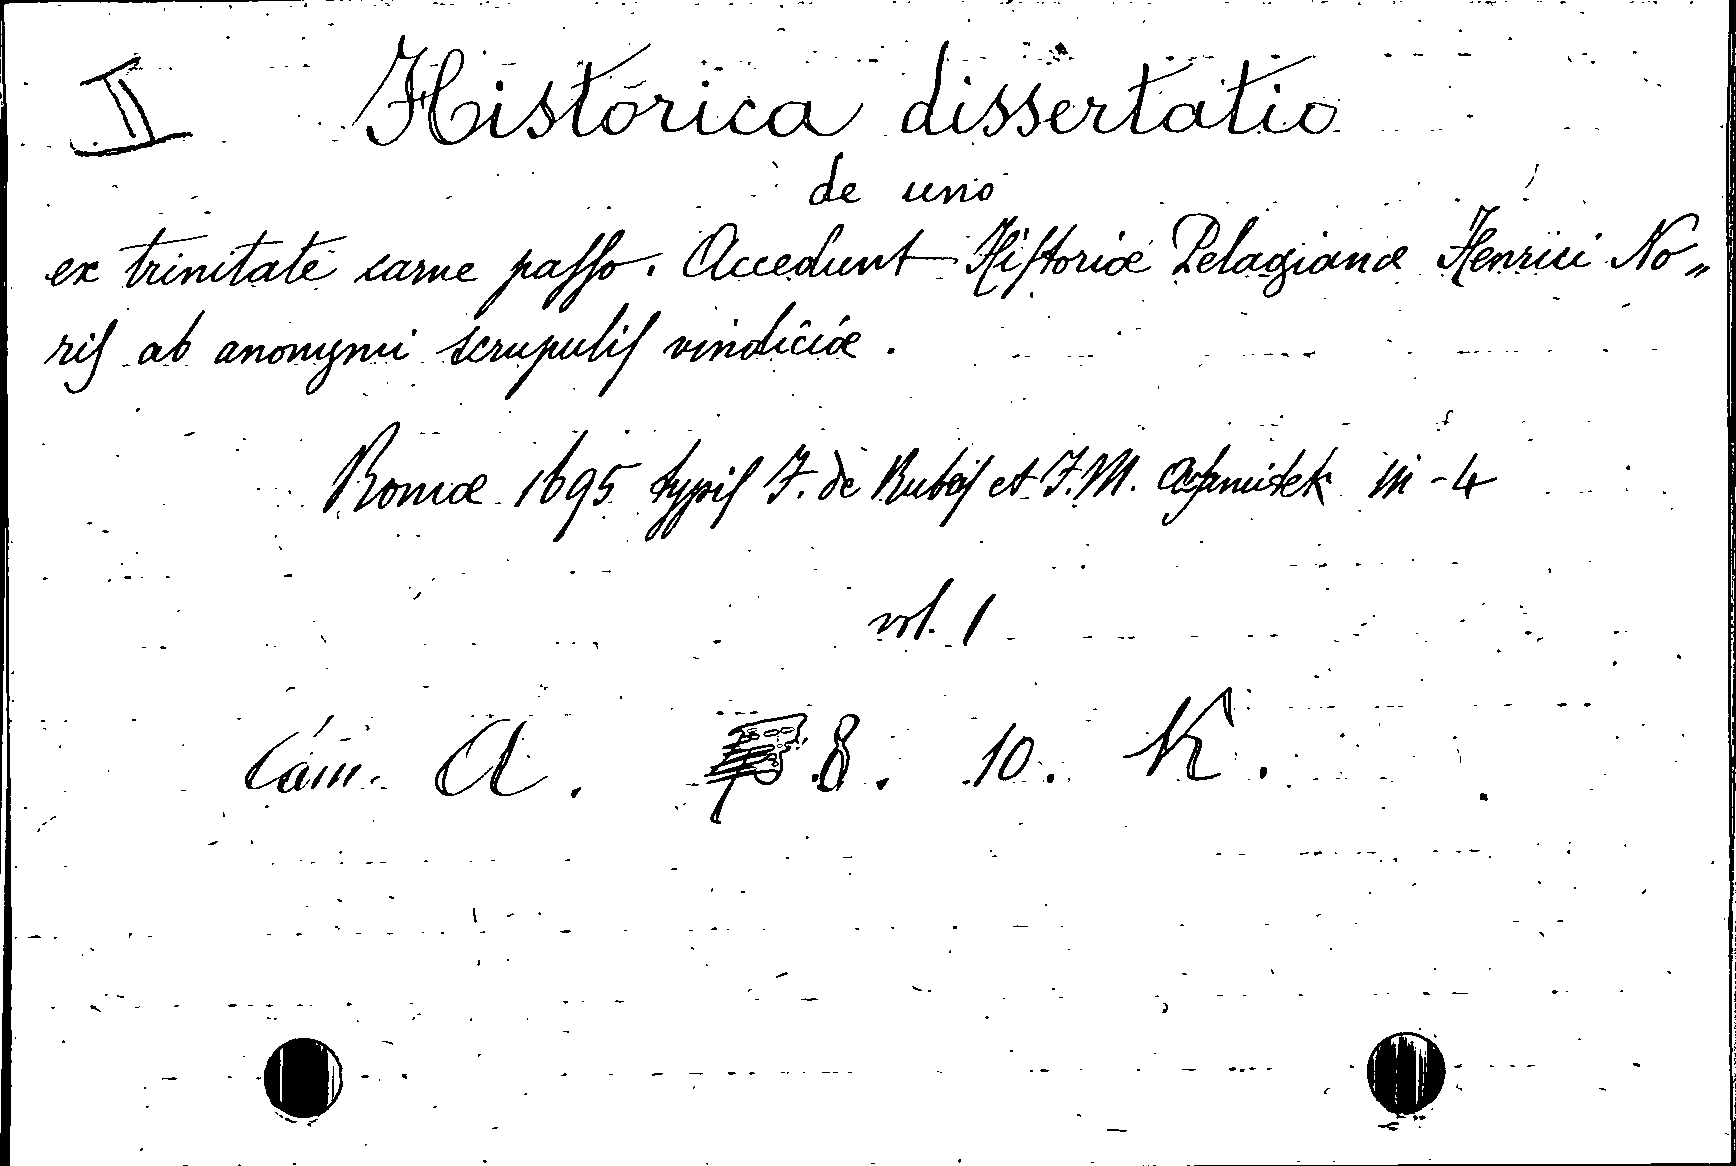 II Historica dissertatio
de uno
ex trinitate carne paſſo. Accedunt Hiſtoriæ Pelagianæ Henrici No„
riſ ab anonymi scrupuliſ vindiciæ.
Romæ 1695 typiſ J. de Rubeiſ et J. M. in-4
vol. 1
Cam. A. 8. 10. K.